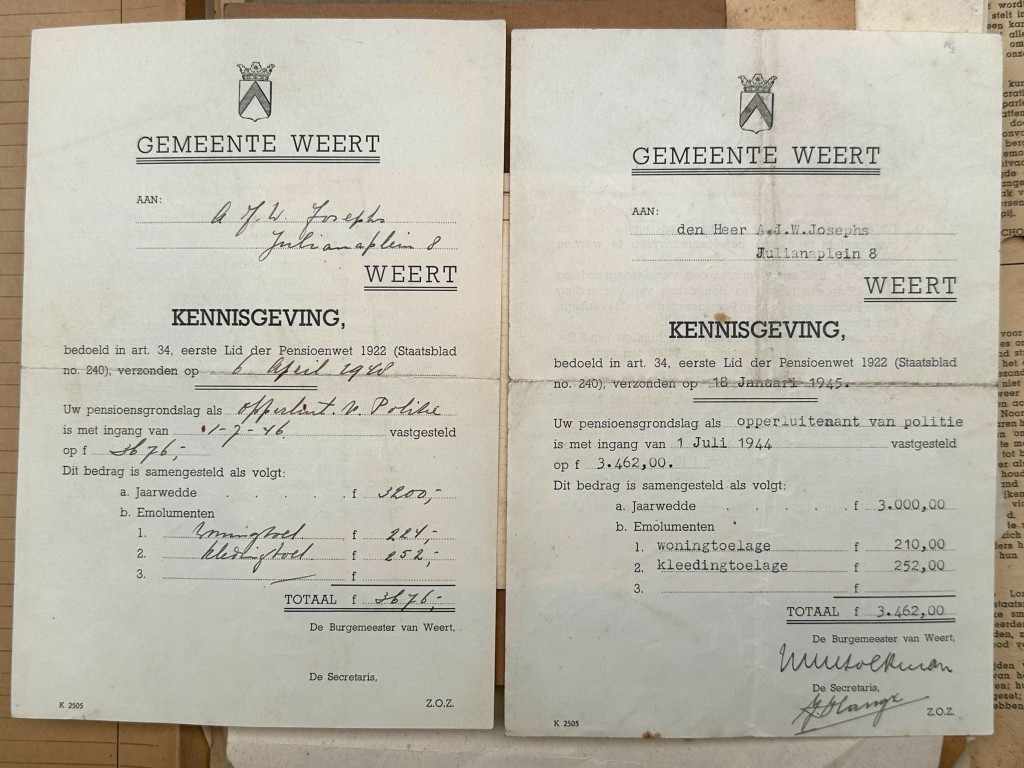 GEMEENTE WEERT
AAN:
A J. W. Josephs
Julianaplein 8
WEERT
KENNISGEVING,
bedoeld in art. 34, eerste Lid der Pensioenwet 1922 (Staatsblad
no. 240), verzonden op 6 April 1948
Uw pensioensgrondslag als opperluit. v. Politie
is met ingang van 1-7-46 vastgesteld
op f 3676,-
Dit bedrag is samengesteld als volgt:
a. Jaarwedde . . . . . f 3200,-
b. Emolumenten
1. woningtoel f 224,-
2. kledingtoel f 252,-
3. f
TOTAAL f 3676,-
De Burgemeester van Weert,
De Secretaris,
K 2505 Z.O.Z.
GEMEENTE WEERT
AAN:
den Heer A.J.W.Josephs
Julianaplein 8
WEERT
KENNISGEVING,
bedoeld in art. 34, eerste Lid der Pensioenwet 1922 (Staatsblad
no. 240), verzonden op 18 Januari 1945.
Uw pensioensgrondslag als opperluitenant van politie
is met ingang van 1 Juli 1944 vastgesteld
op f 3.462,00.
Dit bedrag is samengesteld als volgt:
a. Jaarwedde . . . . . f 3.000,00
b. Emolumenten
1. woningtoelage f 210,00
2. kleedingtoelage f 252,00
3. f
TOTAAL f 3.462,00
De Burgemeester van Weert,
De Secretaris,
K 2505 Z.O.Z.